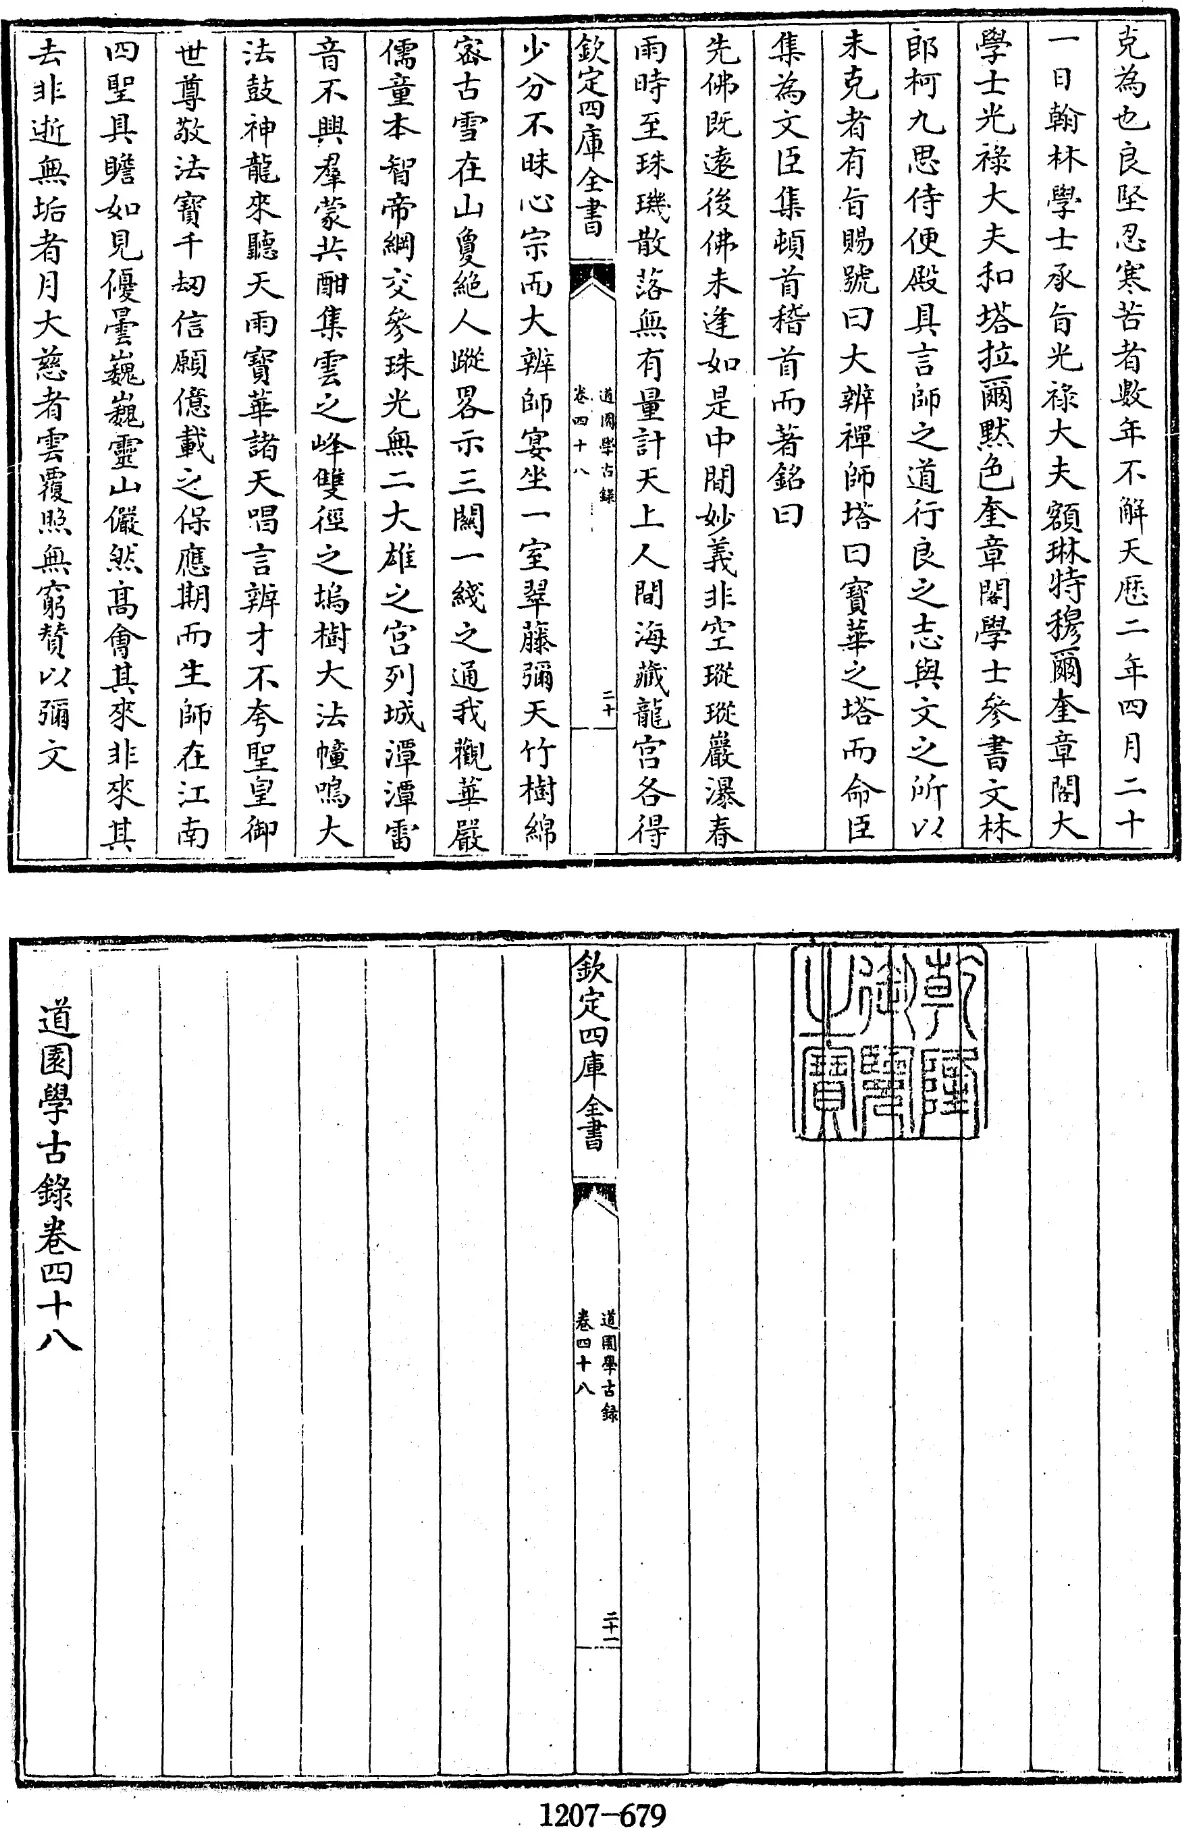 克為也良堅忍寒苦者數年不解天歴二年四月二十
一日翰林學士承旨光祿大夫額琳特穆爾奎章閣大
學士光祿大夫和塔拉爾默色奎章閣學士參書文林
郎柯九思侍便殿具言師之道行良之志與文之所以
未克者有旨賜號曰大辨禪師塔曰寶華之塔而命臣
集為文臣集頓首稽首而著銘曰
先佛既逺後佛未逢如是中間妙義非空瑽瑽巖瀑春
雨時至珠璣散落無有量計天上人間海藏龍宫各得
欽定四庫全書
道園學古録
卷四十八
二十
少分不昧心宗而大辨師宴坐一室翠藤彌天竹樹綿
宻古雪在山夐絶人蹤畧示三闗一綫之通我觀華嚴
儒童本智帝綱交參珠光無二大雄之宫列城潭潭雷
音不興羣蒙共酣集雲之峰雙徑之塢樹大法幢鳴大
法鼓神龍來聽天雨寶華諸天唱言辨才不夸聖皇御
世尊敬法寶千刼信願億載之保應期而生師在江南
四聖具瞻如見優曇巍巍靈山儼然髙會其來非來其
去非逝無垢者月大慈者雲覆照無窮贊以彌文
乾隆
御覽
之寶
欽定四庫全書
道園學古録
卷四十八
二十一
道園學古錄卷四十八
1207-679